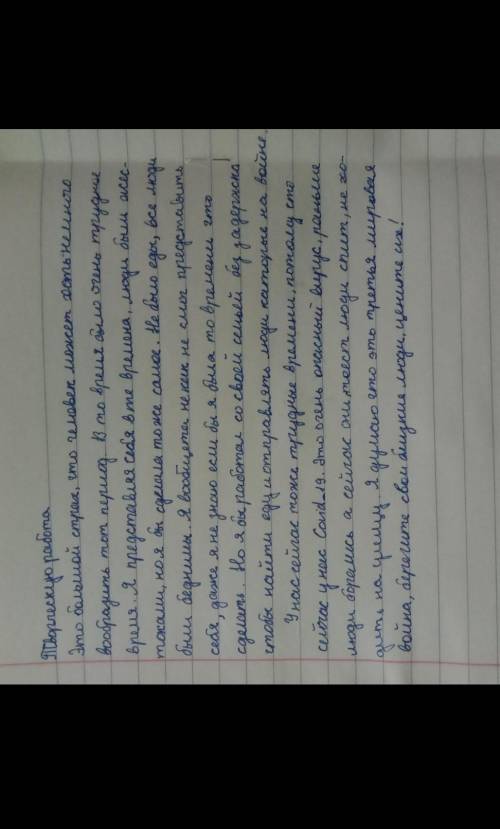 Творческую работа
Это большой страх, что человек может хоть немного
вообразить тот период. В то время было очень трудние
время. Я представляя себя в те времена, люди были жес-
токами, но я бы сделала то же самое. Не было еды, все люди
были бедними. Я вообщета не как не смог представить
себя, даже я не знаю если бы я была то времени что
сделать. Но я бы работал со своей семьёй без задержка
чтобы найти еду и отправлять люди каторые на войне.
У нас сейчас тоже трудные времени, потому что
сейчас у нас Covid-19. Это очень опасный вирус, раньше
люди боролись а сейчас они тоест люди спит, не хо-
дить на улицу. Я думаю что это третья мировая
война, берегите свои близкие люди, цените их!